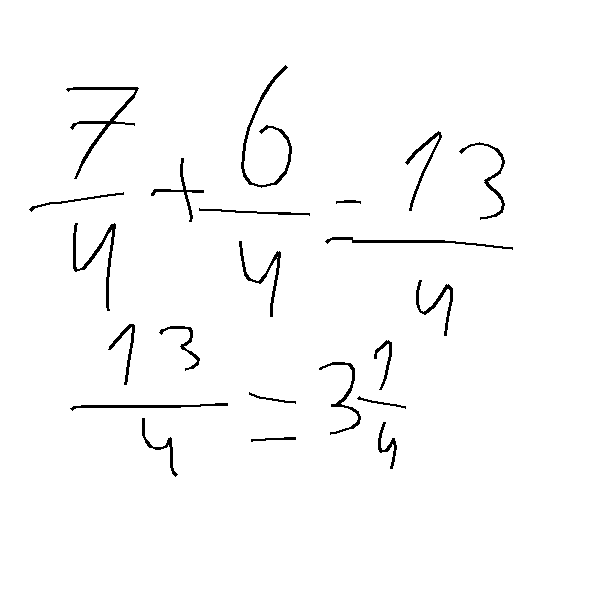 7/4 + 6/4 = 13/4
13/4 = 3 1/4